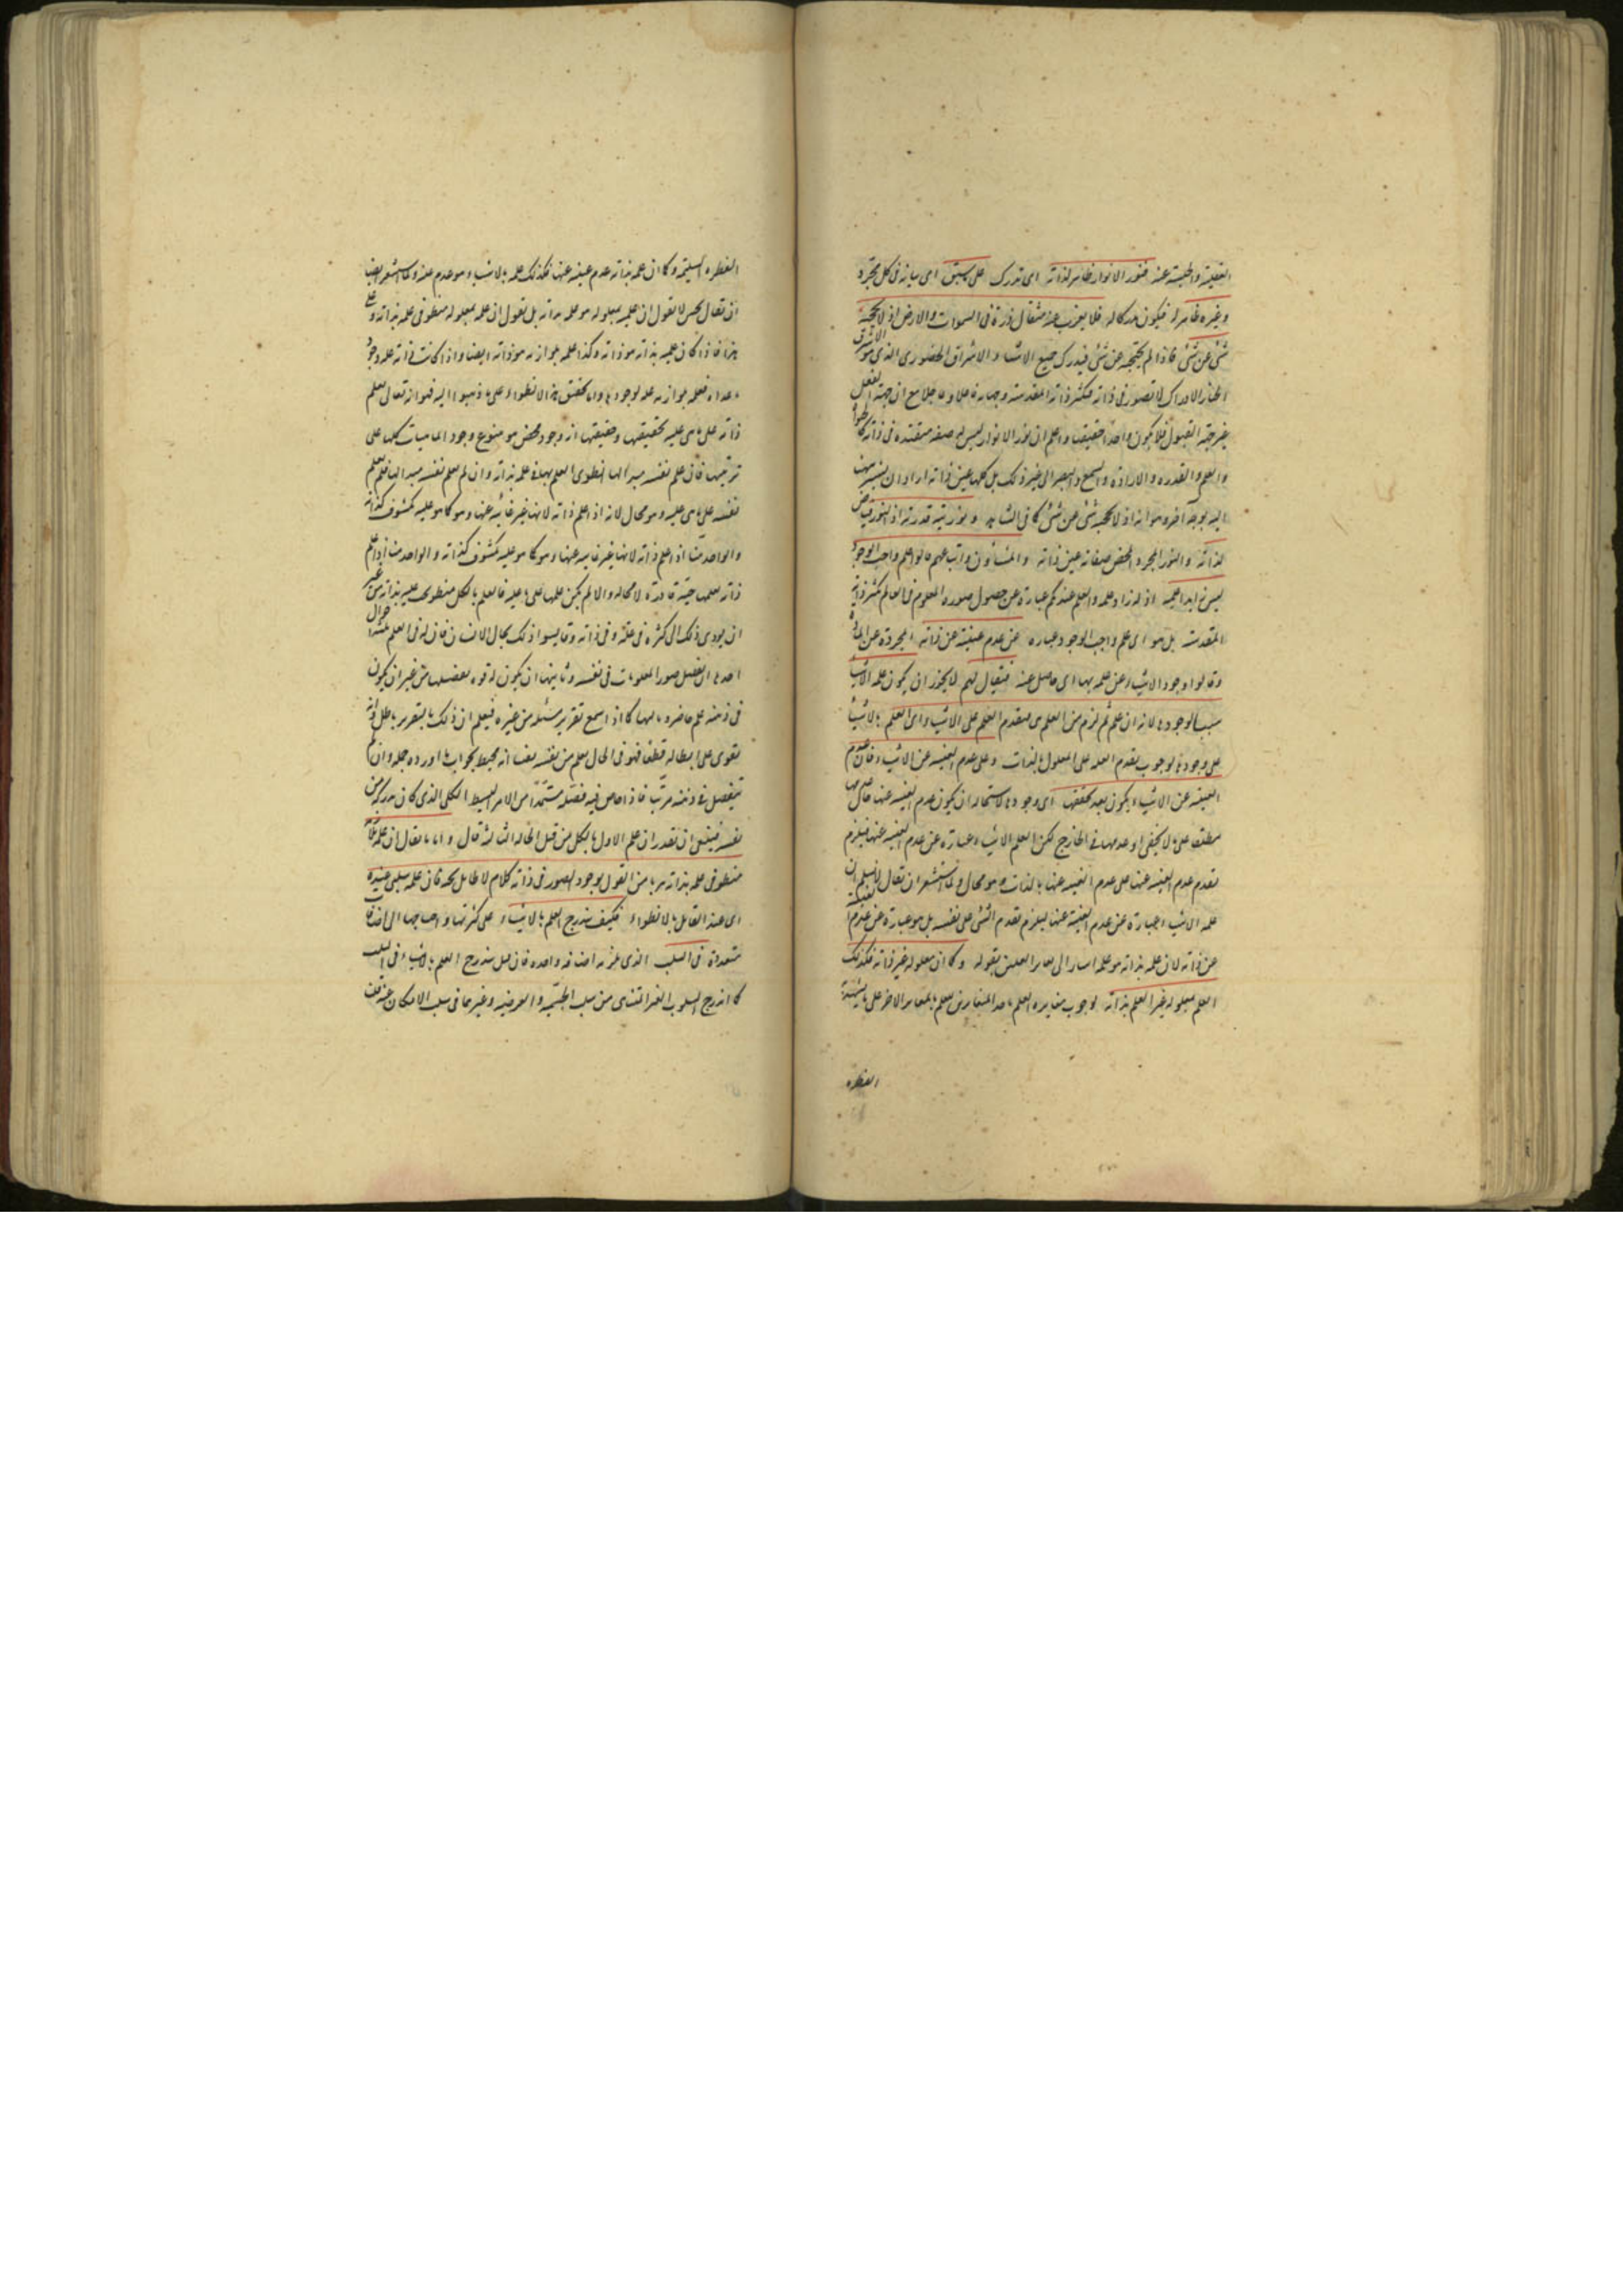 العقلية والحسية عنه فنور الانوار ظاهر لذاته اى تدرك على ما سبق اى بيانه فى كل مجرد
وغيره ظاهر له فيكون مدركا له فلا يعزب عنه مثقال ذرة فى السموات والارض اذ لا يحجبه
شئ عن شئ فاذا لم يحتجب عن شئ فيدرك جميع الاشياء بالاشراق الحضورى الذى هو اشرف
انحاء الادراك لا بصور فى ذاته فتكثر ذاته المقدسة وجهاته فاعلا وقابلا مع ان جهة الفعل
غير جهة القبول فلا يكون واحدا حقيقيا واعلم ان نور الانوار ليس له صفة متقررة فى ذاته كالحيوة
والعلم والقدرة والارادة والسمع والبصر الى غير ذلك بل كلها عين ذاته اراد ان يشير
اليه بوجه اخر وهو انه اذ لا يحجبه شئ عن شئ كما فى الشاهد ونوريته قدرته اذ النور فياض
لذاته والنور المجرد المحض صفاته عين ذاته والمشاؤن واتباعهم قالوا علم واجب الوجود
ليس زايدا عليه اذ لو زاد علمه والعلم عندكم عبارة عن حصول صورة المعلوم فى العالم تكثر ذاته
المقدسة بل هو اى علم واجب الوجود عبارة عن عدم غيبته عن ذاته المجردة عن المادة
وقالوا وجود الاشياء عن علمه بها اى حاصل عنه فيقال لهم لا يجوز ان يكون علمه الاشياء
سببا لوجودها لانه ان علم ثم لزم من العلم شئ فيتقدم العلم على الاشياء اى العلم بالاشياء
على وجودها لوجوب تقدم العلة على المعلول بالذات وعلى عدم الغيبة عن الاشياء فان عدم
الغيبة عن الاشياء يكون بعد تحققها اى وجودها لاستحالة ان يكون عدم الغيبة عنها حاصلا
مطلقا على ما لا يخفى او عدمها فى الخارج لكن العلم الاشياء عبارة عن عدم الغيبة عنها فيلزم
تقدم عدم الغيبة عنها على عدم الغيبة عنها بالذات وهو محال ولما استشعر ان يقال لا نسلم ان
علمه الاشياء عبارة عن عدم الغيبة عنها ليلزم تقدم الشئ على نفسه بل هو عبارة عن عدم غيبته
عن ذاته لان علمه بذاته هو علمه اشار الى تغاير العلمين بقوله وكما ان معلوله غير ذاته فكذلك
العلم بمعلوله غير العلم بذاته لوجوب مغايرة العلم باحد المتغايرين للعلم بالمغاير الاخر على ما يشهد به
الفطره
الفطرة السليمة وكما ان علمه بذاته عدم غيبته عنها فكذلك علمه بالاشياء هو عدم عنه ولما استشعر ايضا
ان يقال نحن لا نقول ان علمه بمعلوله هو علمه بذاته بل نقول ان علمه بمعلوله منطو فى علمه بذاته وعلى
هذا فاذا كان علمه بذاته هو ذاته وكذا علمه بلوازمه هو ذاته ايضا واذا كانت ذاته علة وجود
ما عداه فعلمه بلوازمه علة لوجودها واما تحقيق هذا الانطواء على ما ذهبوا اليه فهو انه تعالى يعلم
ذاته على ما هى عليه بحقيقتها وحقيقتها انه وجود محض هو ينبوع وجود الماهيات كلها على
ترتيبها فان علم نفسه مبدءا لها انطوى العلم بها فى علمه بذاته وان لم يعلم نفسه مبدءا لها فلم يعلم
نفسه على ما هى عليه وهو محال لانه اذا علم ذاته لانها غير غائبة عنها وهو كما هو عليه مكشوف لذاته
والواحد منا اذا علم ذاته لانها غير غايبة عنها وهو كما هو عليه مكشوف لذاته والواحد منا اذا علم
ذاته يعلمها حية قادرة لا محالة والا لم يكن علمها على ما عليه فالعلم بالكل منطوى عليه بذاته من غير
ان يودى ذلك الى كثرة فى علمه وفى ذاته وقايسوا ذلك بحال الانسان فان له فى العلم ثلثة احوال
احدها ان يفصل صور المعلومات فى نفسه وثانيها ان يكون له قوة تفصيلها من غير ان يكون
فى ذهنه علم حاضر وثالثها كما اذا سمع تقرير مسئلة من غيره فيعلم ان ذلك التقرير باطل وانه
يقوى على ابطاله قطعا فهو فى الحال يعلم من نفسه يقينا انه محيط بجواب ما اورده جملة وان لم
يتفصل فى ذهنه مرتب فاذا خاض فيه فصله مستمدا من الامر البسيط الكلى الذى كان يدركه من
نفسه فينبغى ان تقدر ان علم الاول بالكل من قبيل الحالة الثالثة قال واما ما يقال ان علمه بلازمه
منطو فى علمه بذاته هربا من القول بوجود الصور فى ذاته كلام لا طائل تحته فان علمه سلبى عنده
اى عند القائل بالانطواء فكيف يندرج العلم بالاشياء على كثرتها واحتياجها الى اضافات
متعددة فى السلب الذى يلزمه اضافة واحدة فان قيل يندرج العلم بالاشياء فى السلب
كما اندرج السلوب الغير المتناهى من سلب الجسمية والعرضية وغيرهما فى سلب الامكان عنه قلت